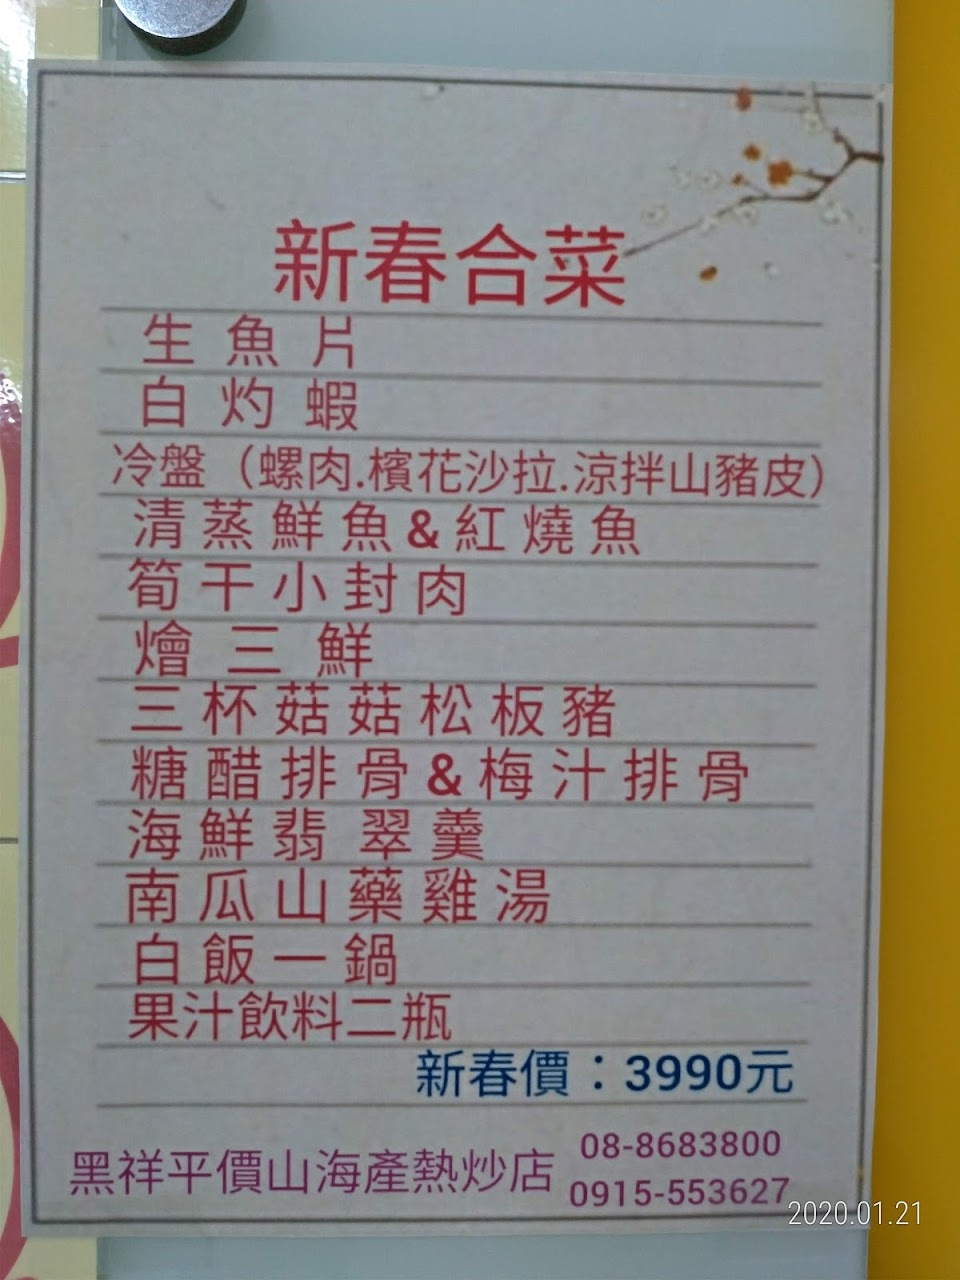 新春合菜
生魚片
白灼蝦
冷盤（螺肉.檳花沙拉.涼拌山豬皮）
清蒸鮮魚&紅燒魚
筍干小封肉
燴三鮮
三杯菇菇松板豬
糖醋排骨&梅汁排骨
海鮮翡翠羹
南瓜山藥雞湯
白飯一鍋
果汁飲料二瓶
新春價：3990元
黑祥平價山海產熱炒店
08-8683800
0915-553627
2020.01.21